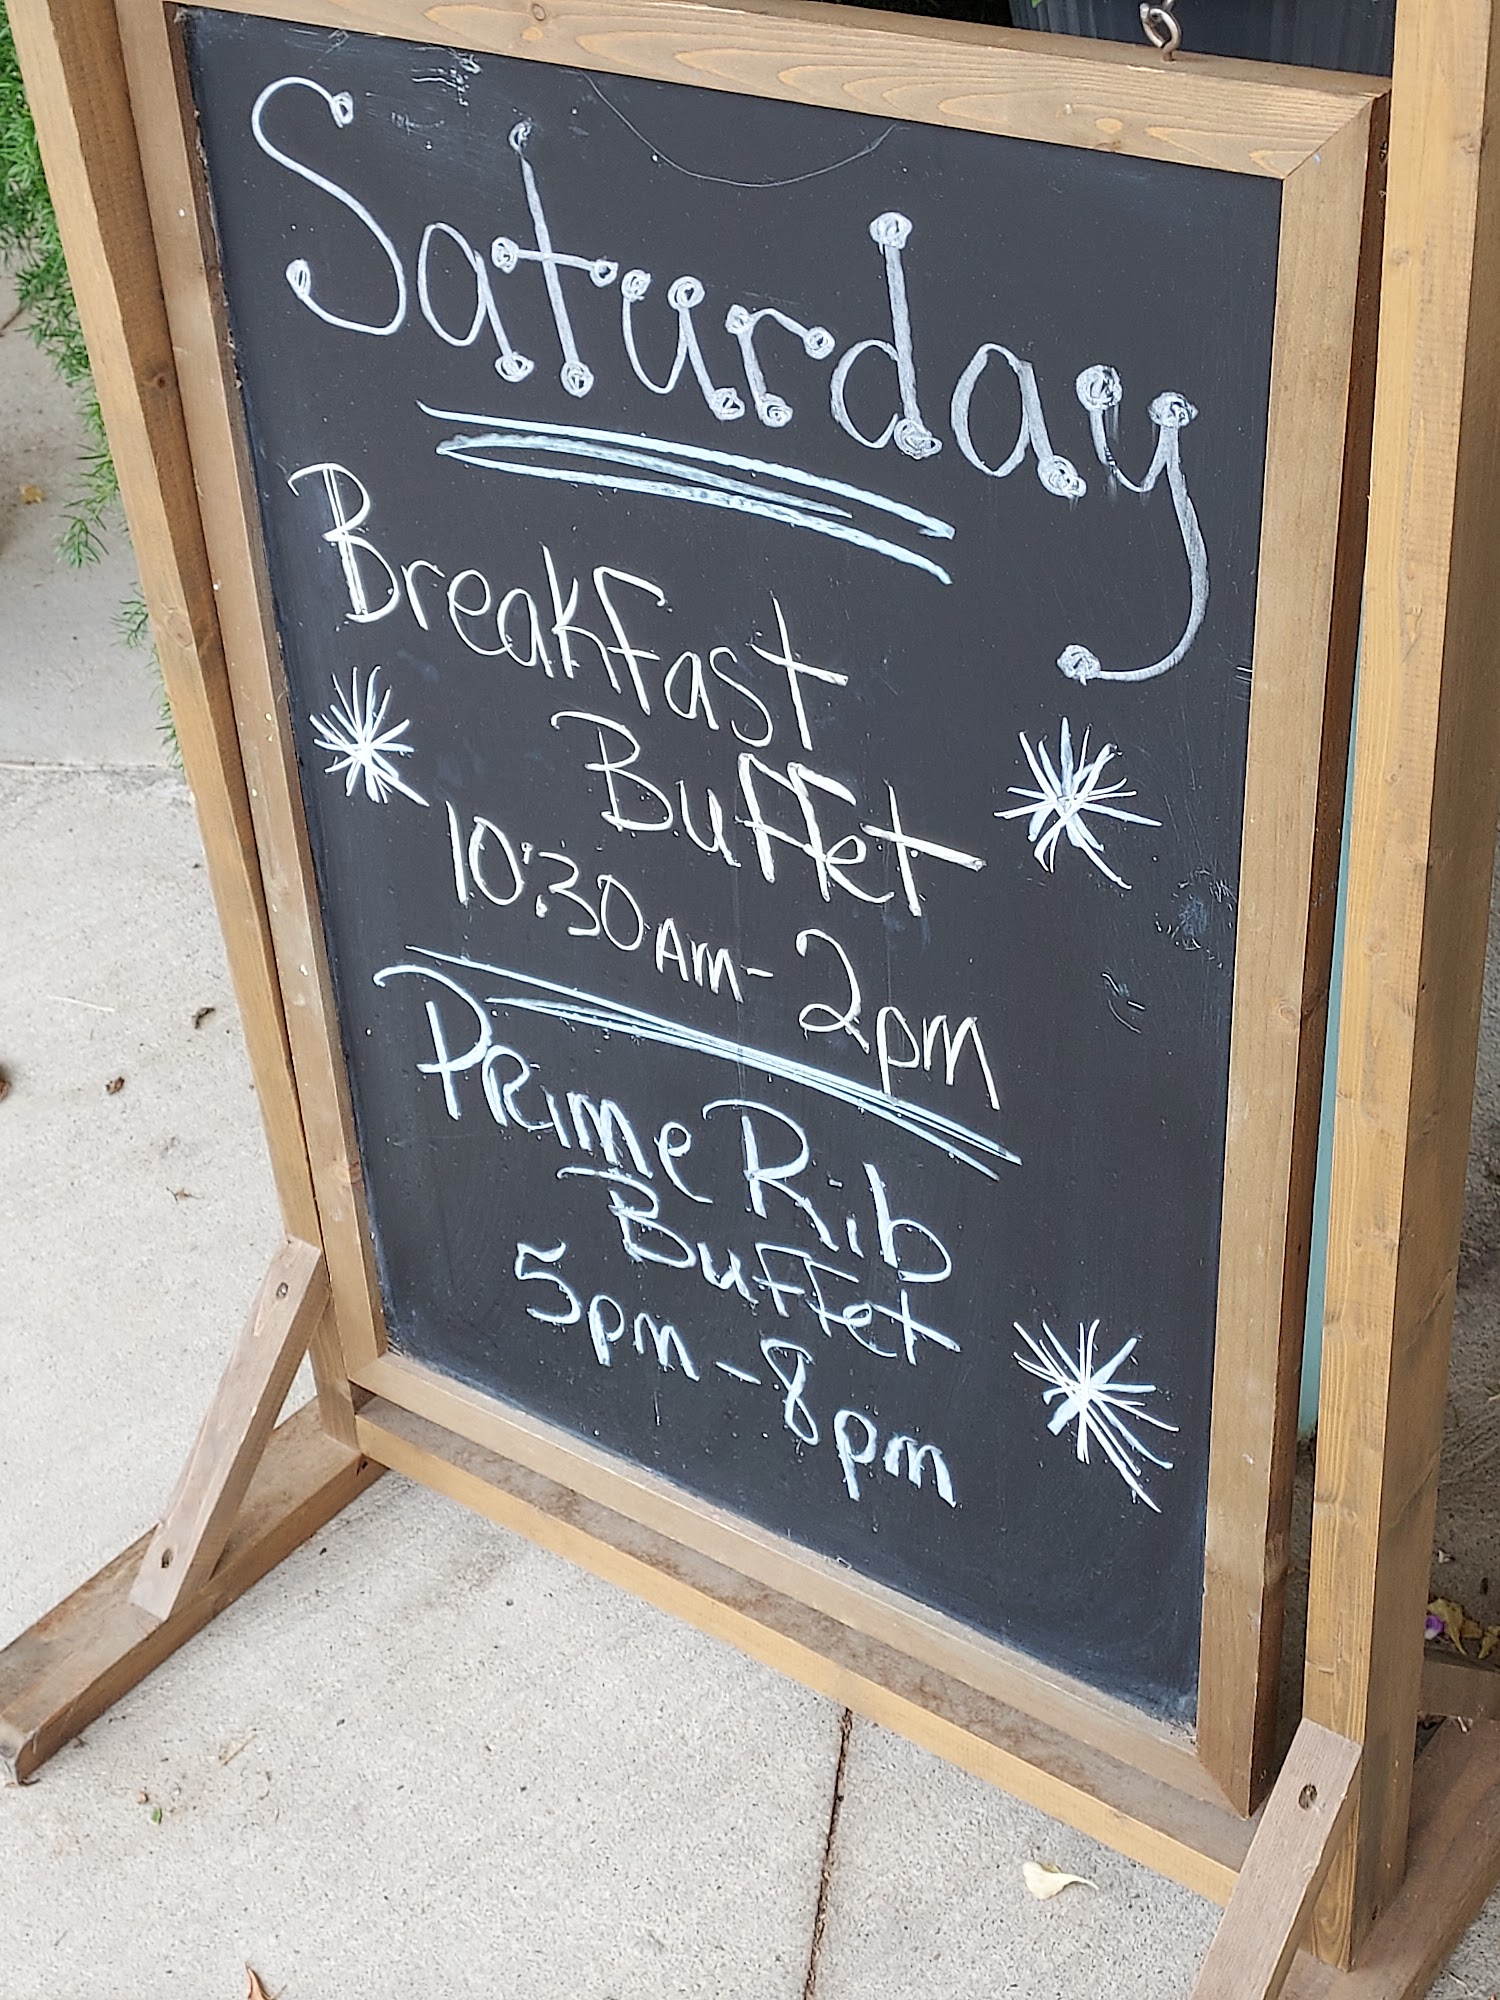 Saturday
Breakfast
Buffet
10:30am - 2pm
Prime Rib
Buffet
5pm - 8pm